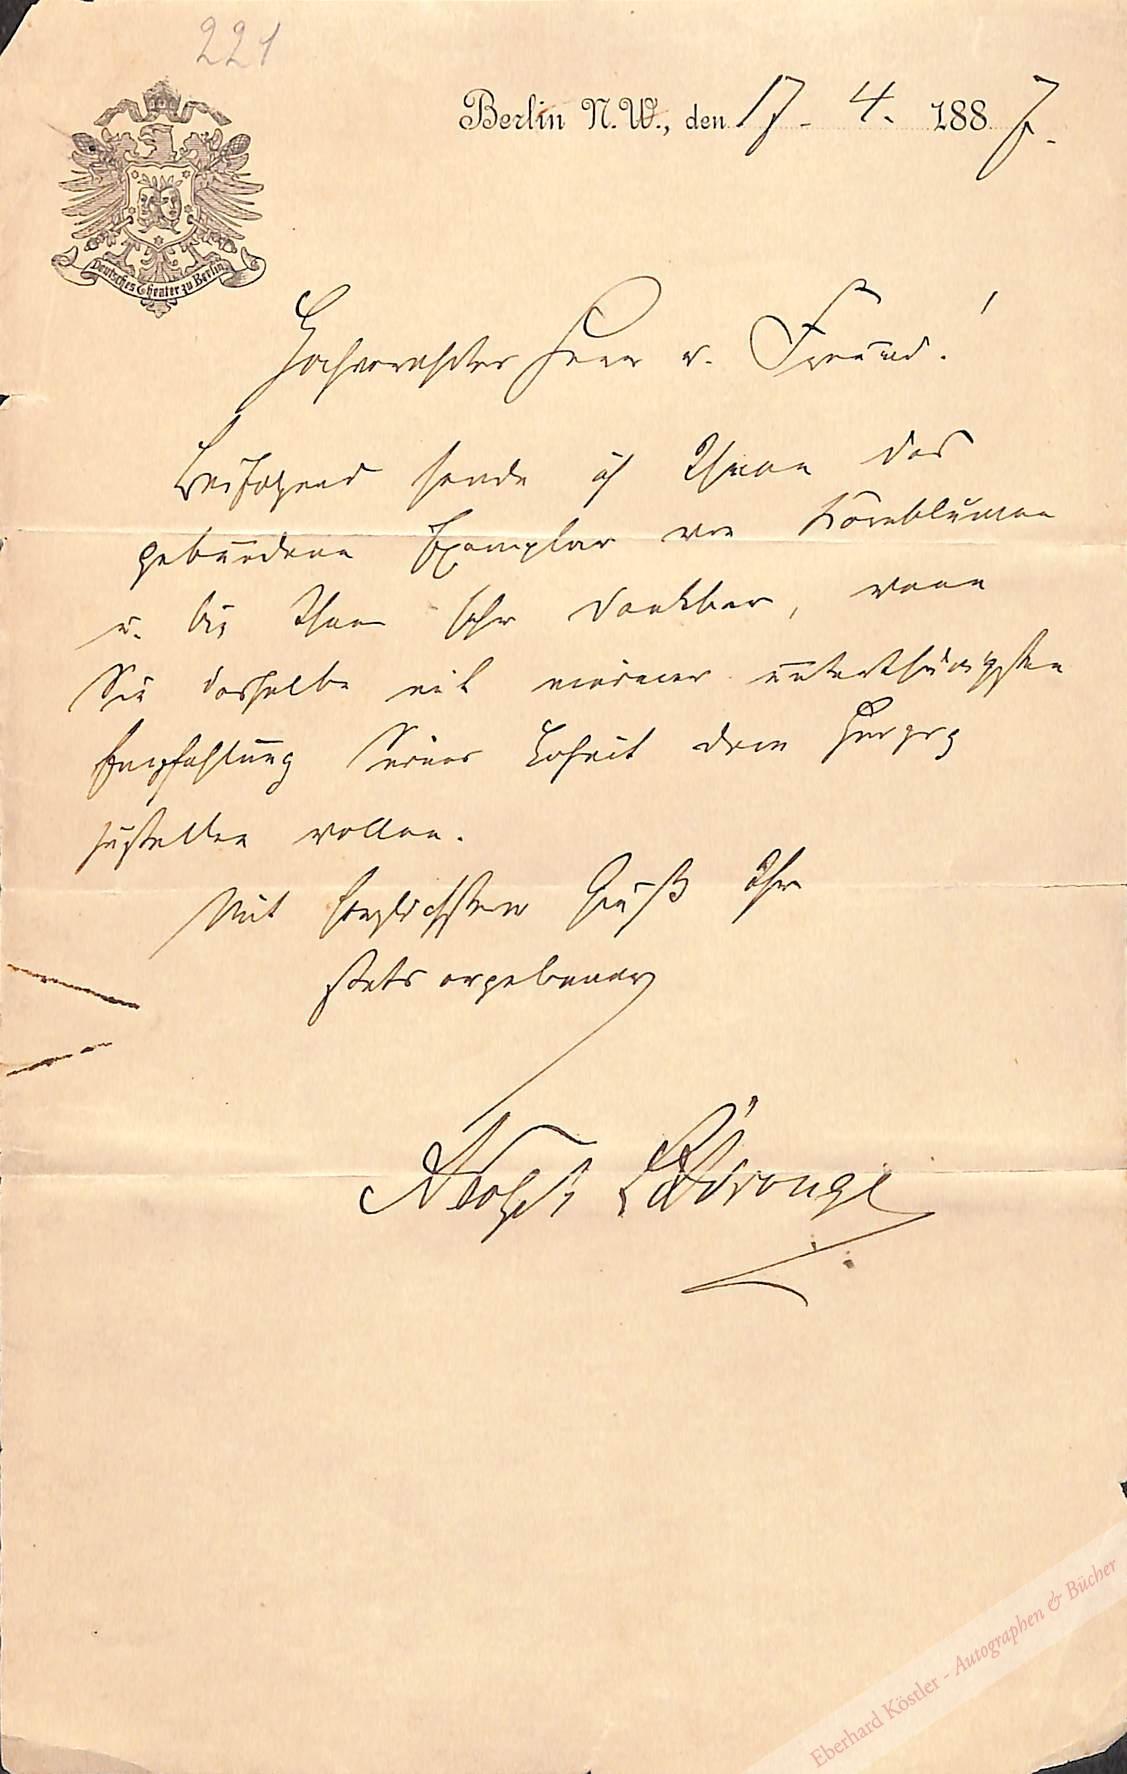 221
Berlin N.W., den 17. 4. 1887.
Deutsches Theater zu Berlin
Hochverehrter Herr v. Freund!
Beifolgend sende ich Ihnen das
gebundene Exemplar von Kornblumen
u. bin Ihnen sehr dankbar, wenn
Sie dasselbe mit meiner unterthänigsten
Empfehlung Seiner Hoheit dem Herzog
zustellen wollen.
Mit herzlichstem Gruß Ihr
stets ergebener
Adolph L'Arronge
Eberhard Köstler - Autographen & Bücher